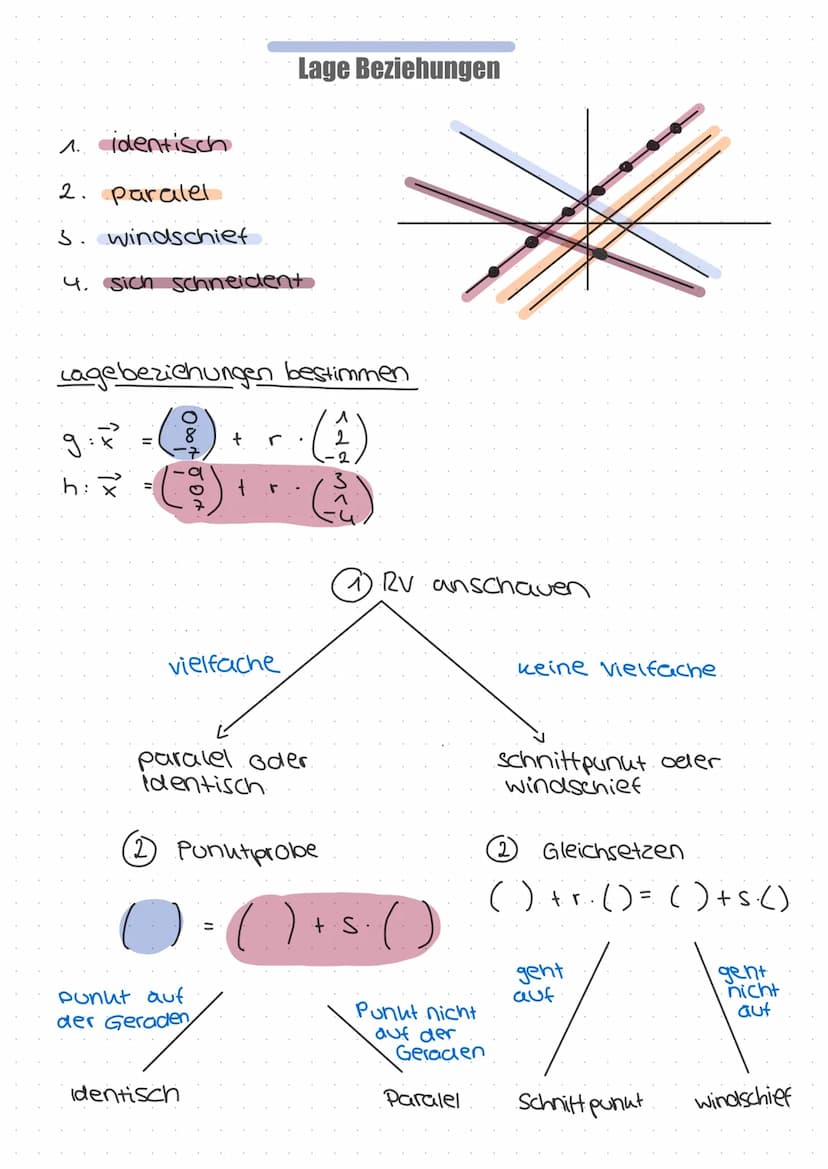 Lage Beziehungen
1. identisch
2. paralel
3. windschief
4. sich schneident
Lagebeziehungen bestimmen
g: x⃗ = (0 8 -7) + r · (1 2 -2)
h: x⃗ = (-9 0 7) + r · (3 1 -4)
① RV anschauen
vielfache
keine vielfache
paralel oder
identisch
schnittpunkt oder
windschief
② Punktprobe
② Gleichsetzen
( ) = ( ) + s · ( )
( ) + r · ( ) = ( ) + s · ( )
punkt auf
der Geraden
Punkt nicht
auf der
Geraden
geht
auf
geht
nicht
auf
identisch
Paralel
Schnittpunkt
windschief